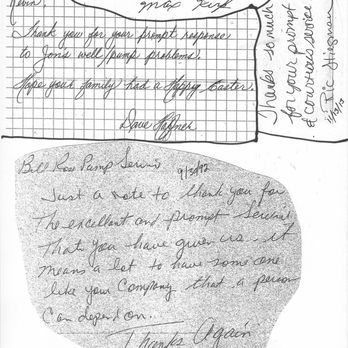 Kevin,
Thank you for your prompt response
to Jon's well/pump problems.
Hope your family had a Happy Easter.
Dave
Thanks so much
for your prompt
& courteous service
Ric
Bill Ross Pump Service
9/30/92
Just a note to thank you for
The excellant and prompt Service
That you have given us. it
means a lot to have some one
like your Company that a person
Can depend on..
Thanks Again